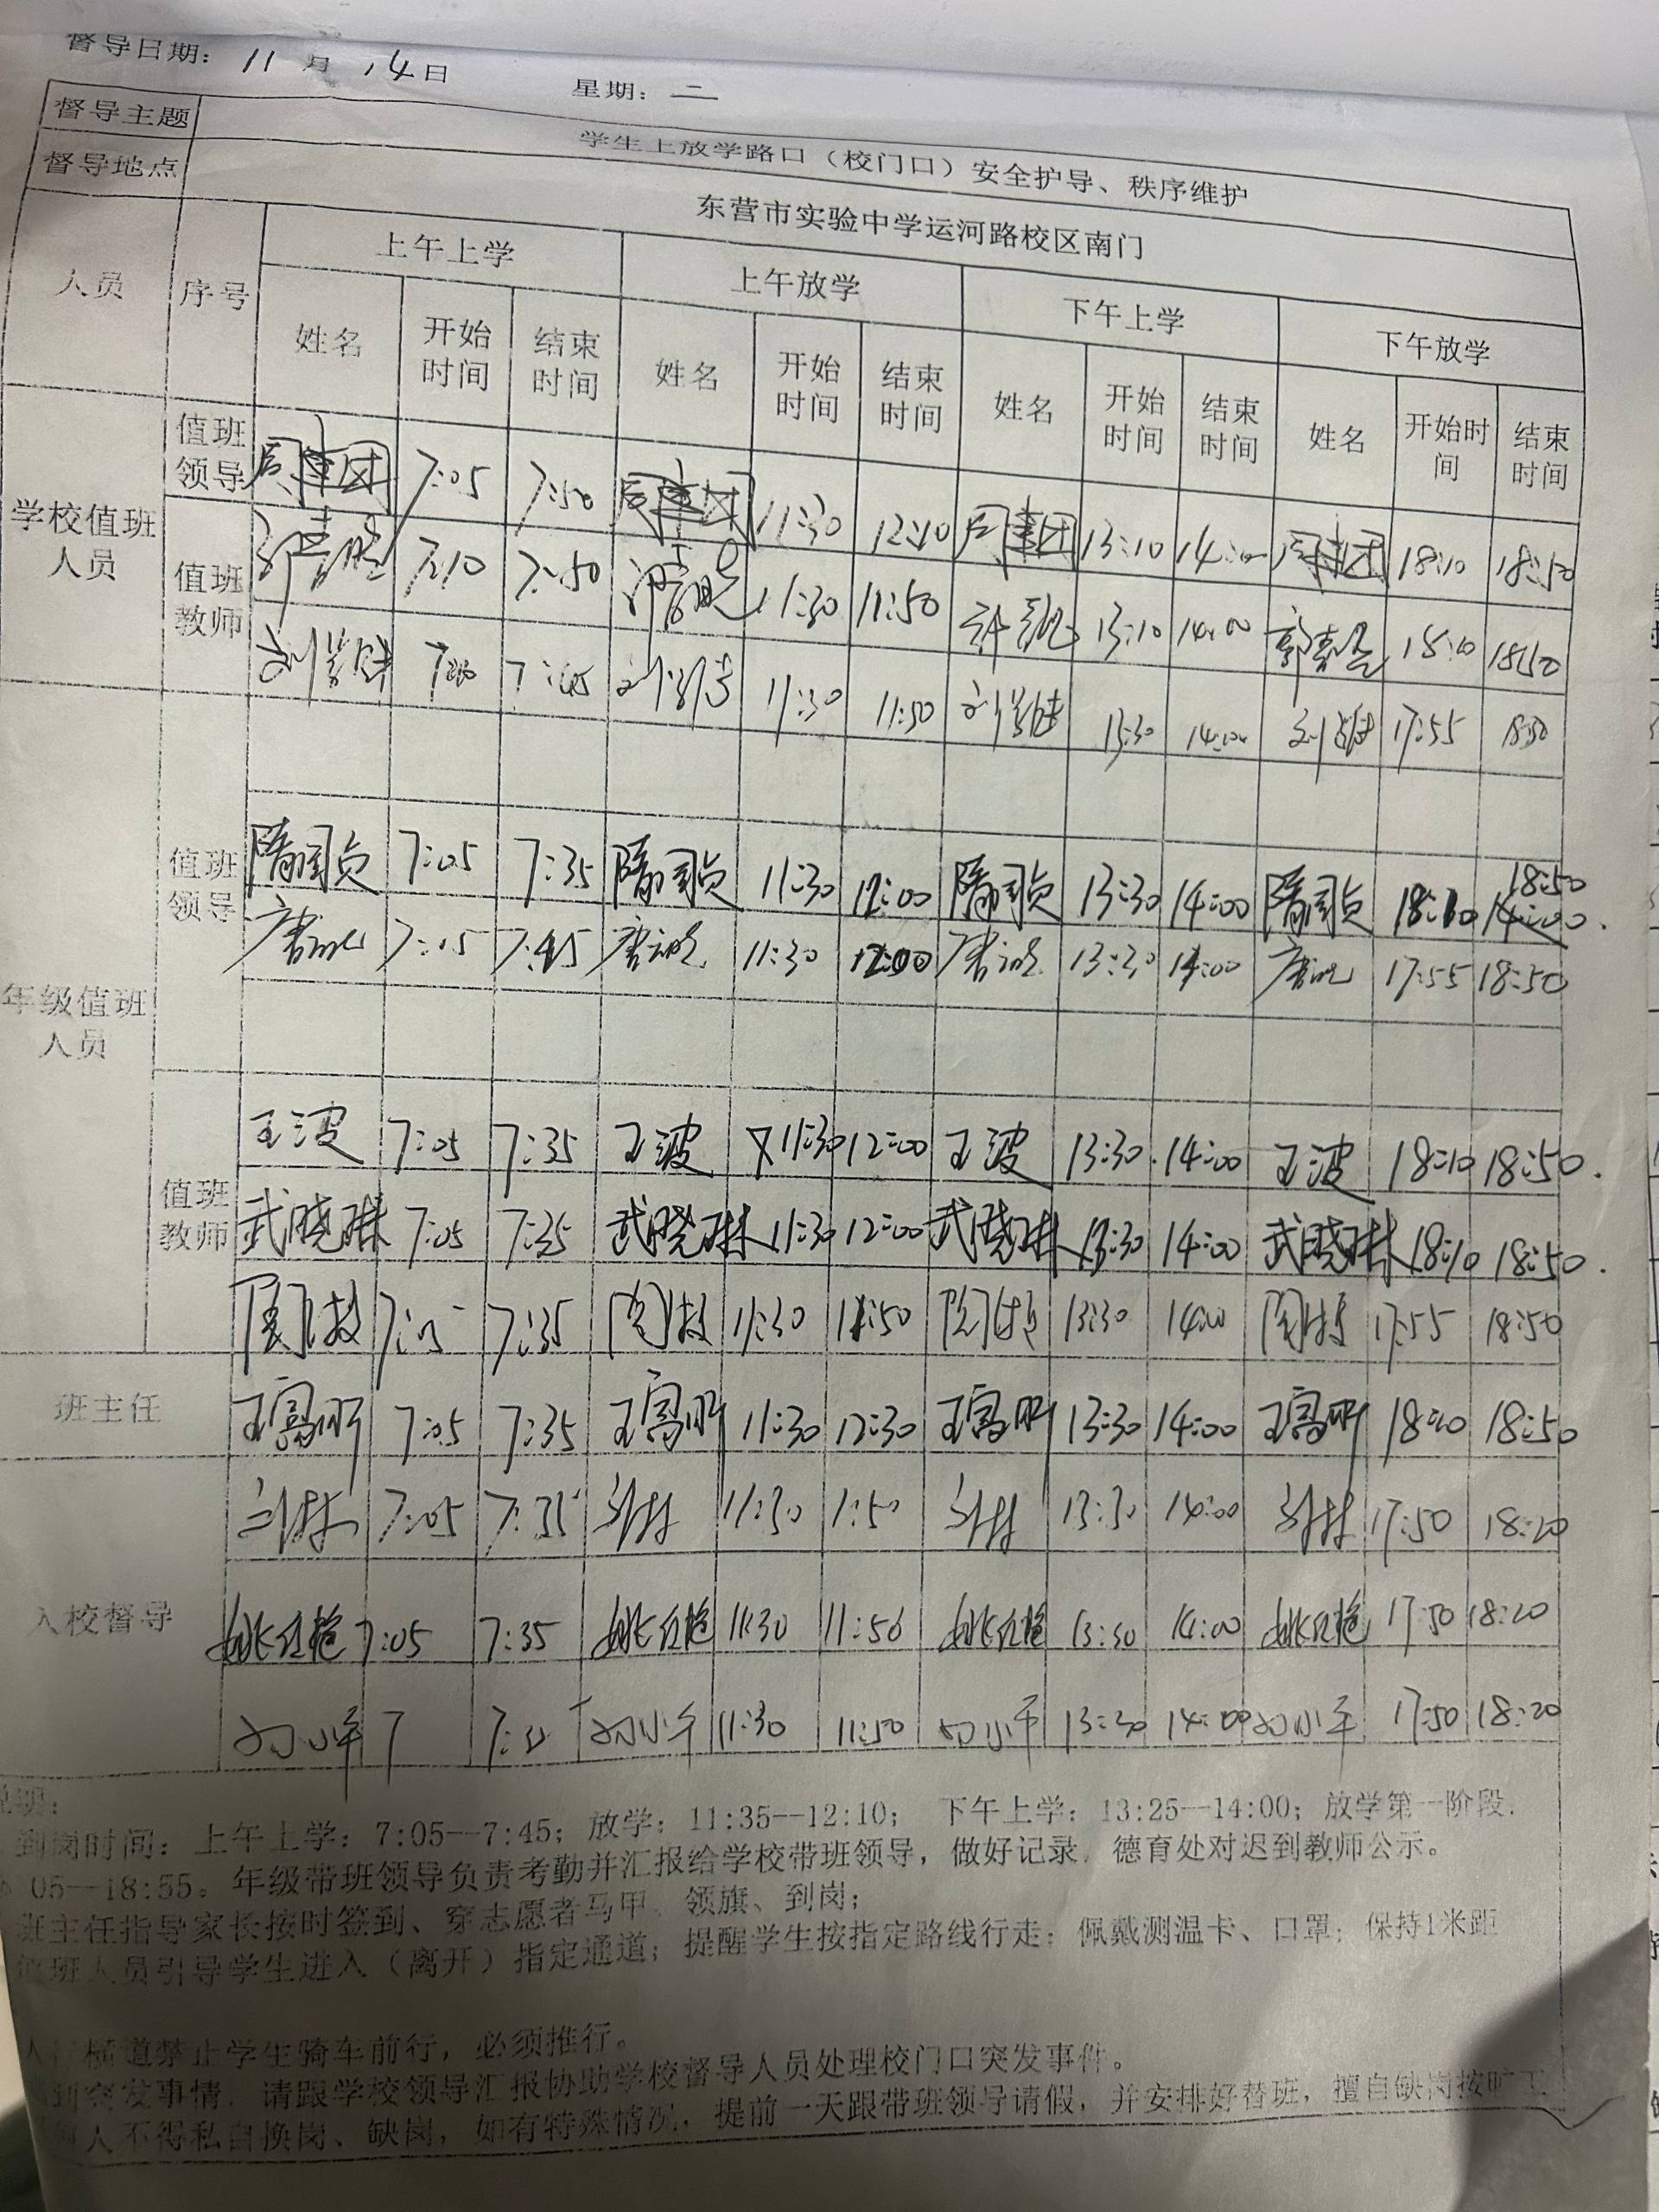 督导日期：11月14日 星期：二
督导主题 学生上放学路口（校门口）安全护导、秩序维护
督导地点 东营市实验中学运河路校区南门
人员 序号 上午上学 上午放学 下午上学 下午放学
姓名 开始时间 结束时间 姓名 开始时间 结束时间 姓名 开始时间 结束时间 姓名 开始时间 结束时间
学校值班人员
值班领导 7:05 7:50 11:30 12:10 13:10 14:00 18:10 18:50
值班教师 7:10 7:50 11:30 11:50 13:10 14:00 18:10 18:50
7:45 11:30 11:50 13:30 14:00 17:55 18:50
年级值班人员
值班领导 隋国贞 7:05 7:35 隋国贞 11:30 12:00 隋国贞 13:30 14:00 隋国贞 18:10 18:50
7:15 7:45 11:30 12:00 13:30 14:00 17:55 18:50
值班教师 王波 7:05 7:35 王波 11:30 12:00 王波 13:30 14:00 王波 18:10 18:50
武晓琳 7:05 7:35 武晓琳 11:30 12:00 武晓琳 13:30 14:00 武晓琳 18:10 18:50
7:05 7:35 11:30 11:50 13:30 14:00 17:55 18:50
班主任 王富明 7:05 7:35 王富明 11:30 12:30 王富明 13:30 14:00 王富明 18:20 18:50
入校督导
7:05 7:35 11:30 1:50 13:30 14:00 17:50 18:20
姚红艳 7:05 7:35 姚红艳 11:30 11:50 姚红艳 13:30 14:00 姚红艳 17:50 18:20
7 11:30 11:50 13:30 14:00 17:50 18:20
说明：
到岗时间：上午上学：7:05--7:45；放学：11:35--12:10； 下午上学：13:25--14:00；放学第一阶段.
05--18:55。年级带班领导负责考勤并汇报给学校带班领导，做好记录，德育处对迟到教师公示。
班主任指导家长按时签到、穿志愿者马甲、领旗、到岗；
值班人员引导学生进入（离开）指定通道；提醒学生按指定路线行走；佩戴测温卡、口罩；保持1米距
人行横道禁止学生骑车前行，必须推行。
到突发事情，请跟学校领导汇报协助学校督导人员处理校门口突发事件。
人不得私自换岗、缺岗，如有特殊情况，提前一天跟带班领导请假，并安排好替班，擅自缺岗按旷工